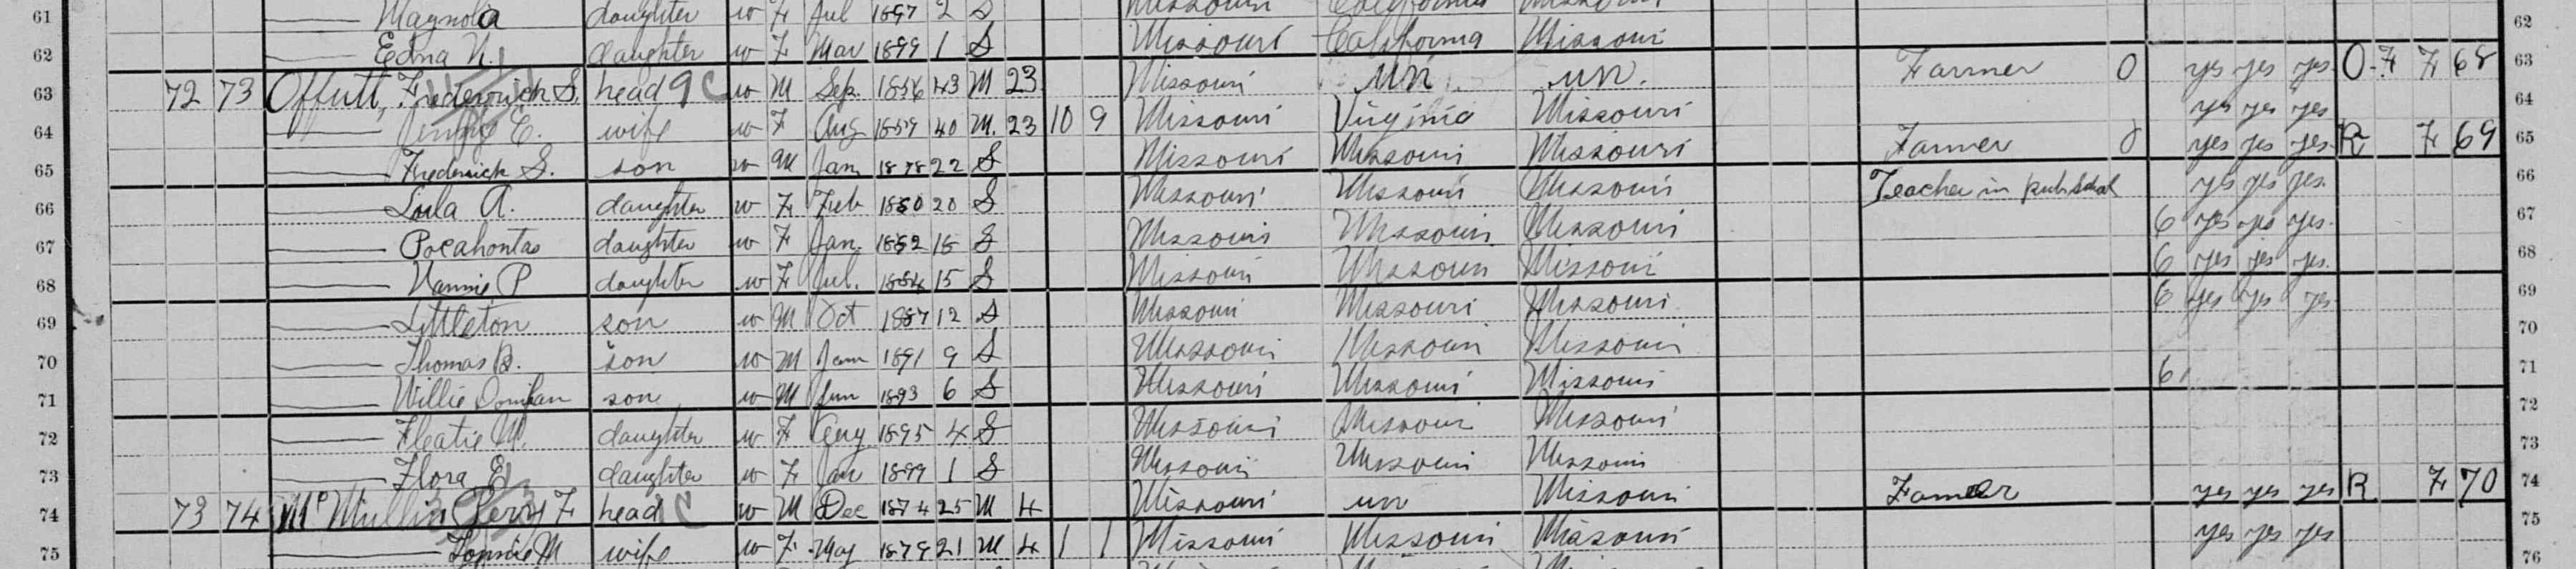 61 Magnolia daughter w F Jul 1897 2 S Missouri California Missouri 62
62 Edna N. daughter w F Mar 1899 1 S Missouri California Missouri
63 72 73 Offutt, Frederick S. head 9 C w M Sep. 1856 43 M 23 Missouri un. un. Farmer 0 yes yes yes O F F 68 63
64 E. wife w F Aug 1859 40 M. 23 10 9 Missouri Virginia Missouri yes yes yes 64
65 Frederick S. son w M Jan 1878 22 S Missouri Missouri Missouri Farmer 0 yes yes yes R F 69 65
66 Loula A. daughter w F Feb 1880 20 S Missouri Missouri Missouri Teacher in pub school yes yes yes. 66
67 Pocahontas daughter w F Jan. 1882 18 S Missouri Missouri Missouri 6 yes yes yes. 67
68 Nannie P daughter w F Jul. 1884 15 S Missouri Missouri Missouri 6 yes yes yes. 68
69 Littleton son w M Oct 1887 12 S Missouri Missouri Missouri 6 yes yes yes 69
70 Thomas B. son w M Jan 1891 9 S Missouri Missouri Missouri 70
71 Willie Doniphan son w M Jun 1893 6 S Missouri Missouri Missouri 6 71
72 Fleatie M. daughter w F Aug 1895 4 S Missouri Missouri Missouri 72
73 Flora E daughter w F Jan 1899 1 S Missouri Missouri Missouri 73
74 73 74 McMullin Perry F head C w M Dec 1874 25 M 4 Missouri un Missouri Farmer yes yes yes R F 70 74
75 M wife w F May 1879 21 M 4 1 1 Missouri Missouri Missouri yes yes yes 75
76